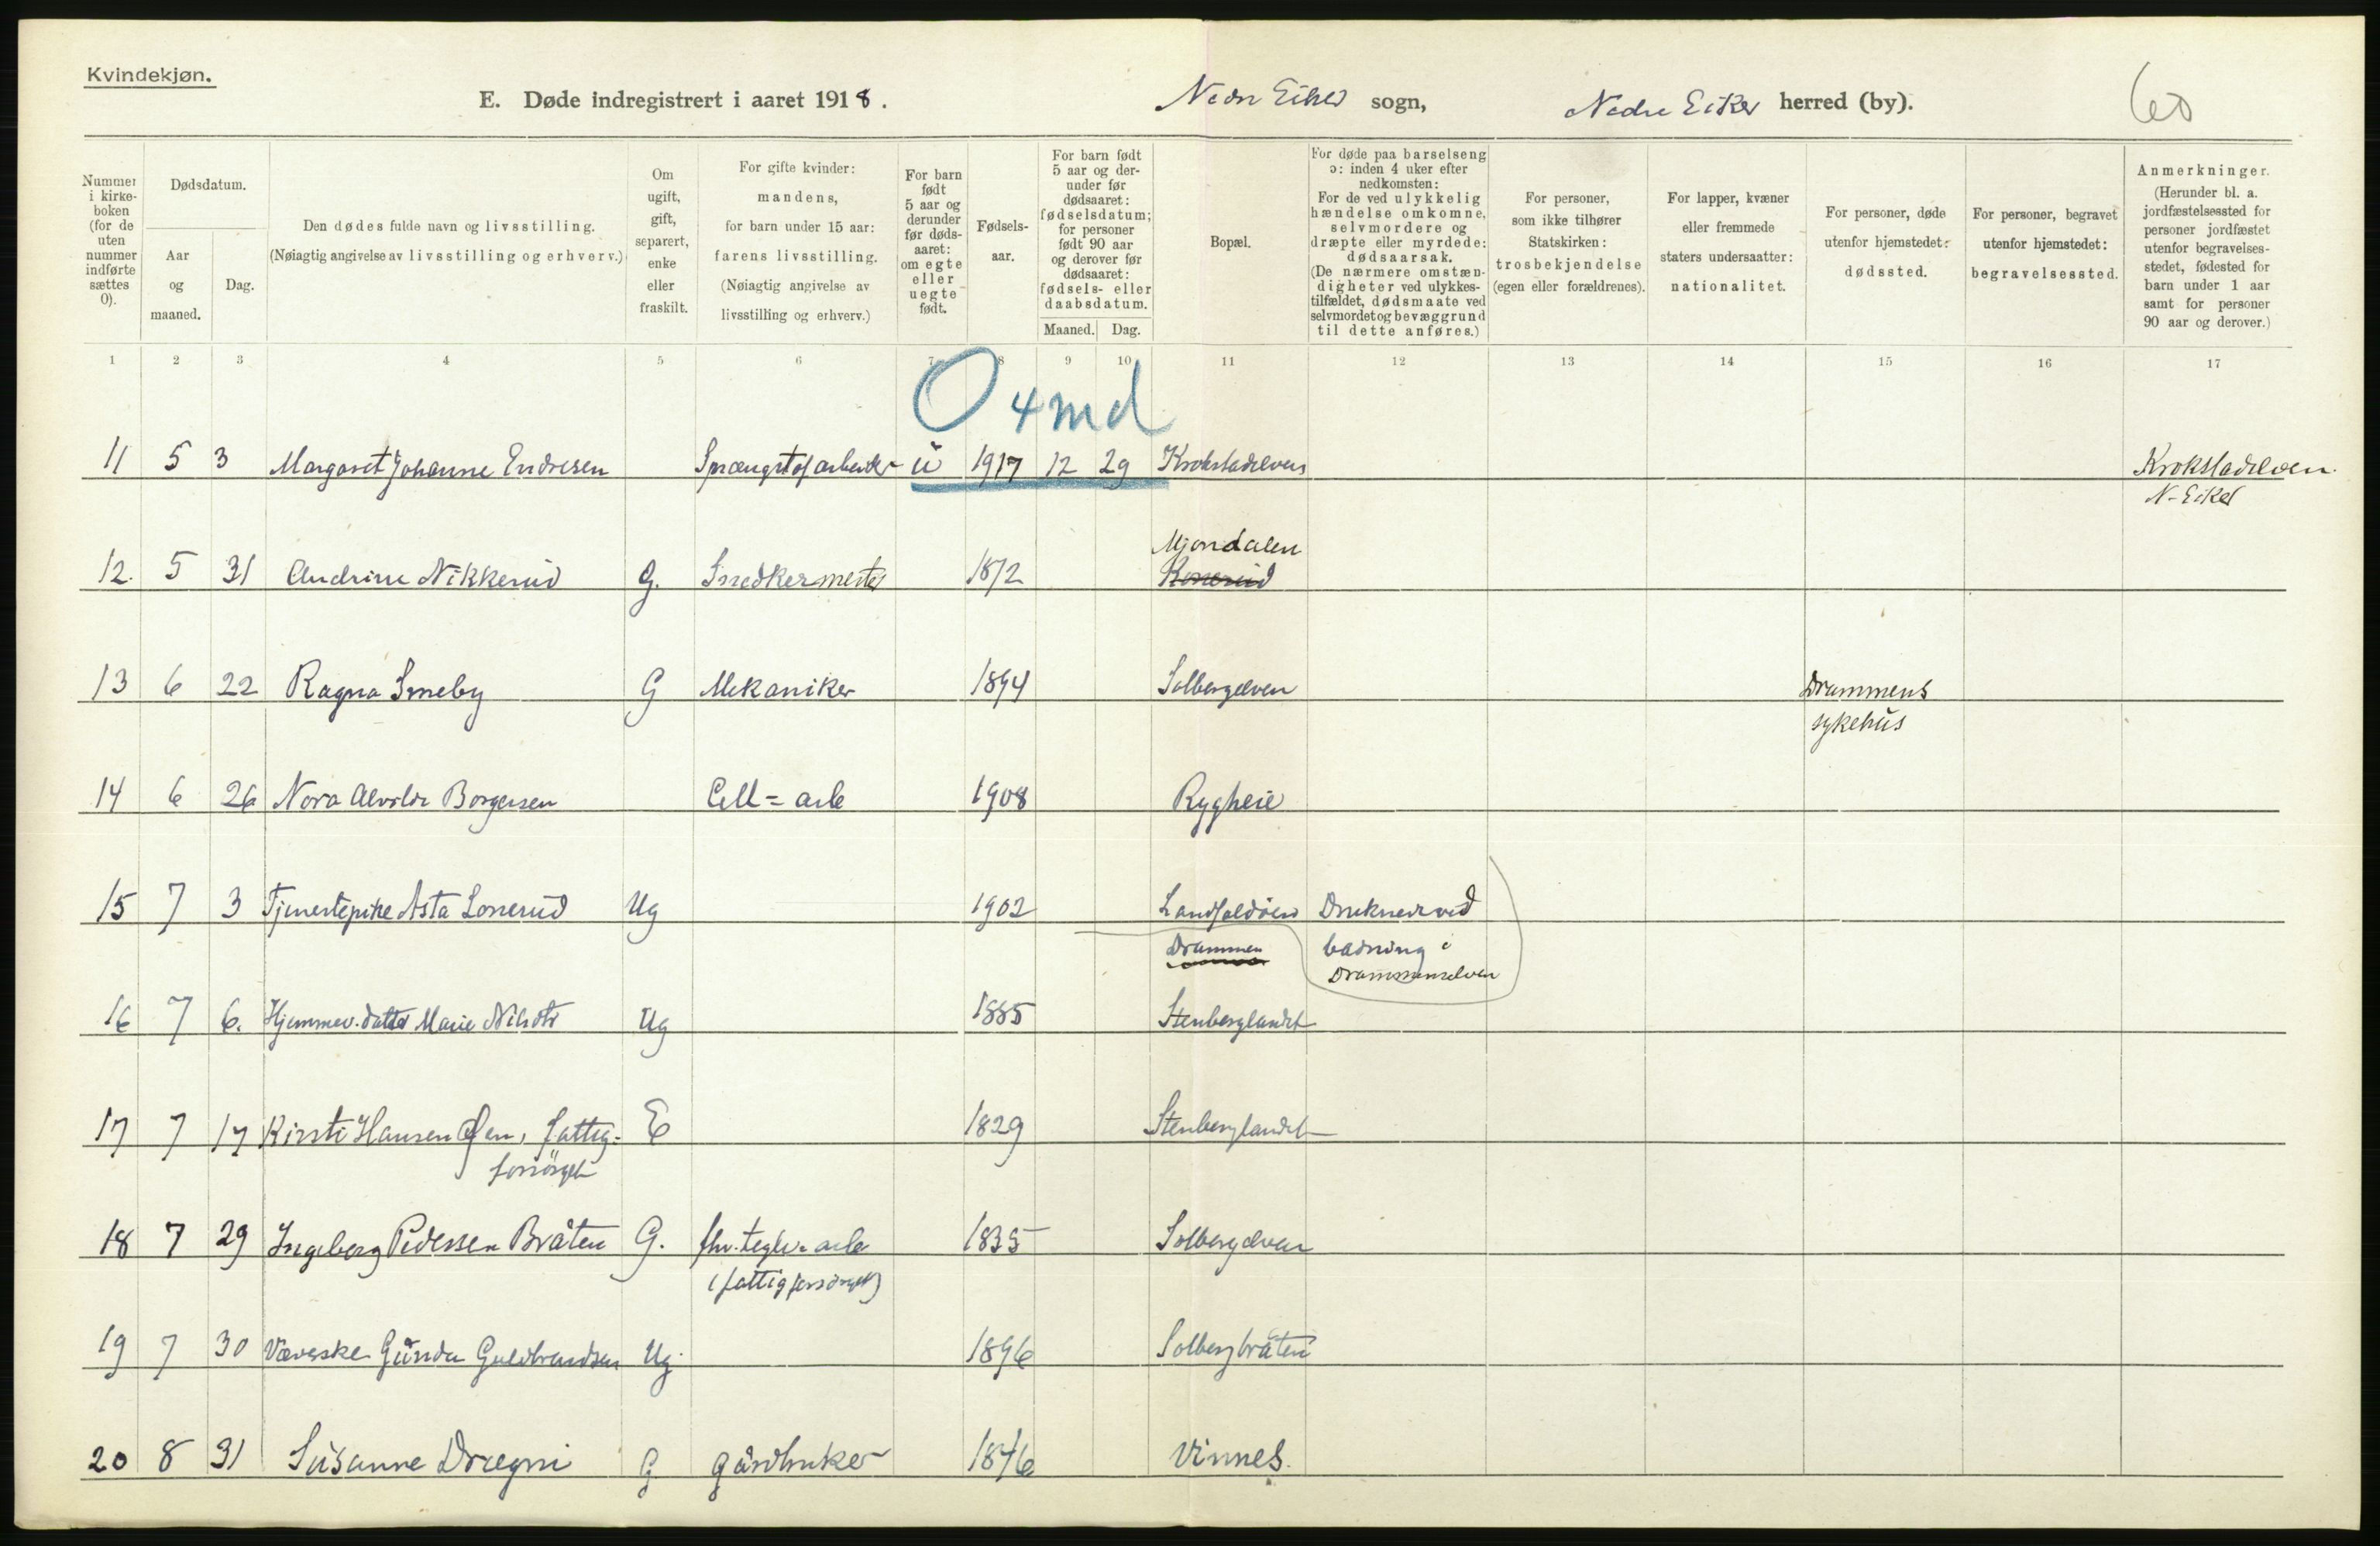 Kvindekjøn.
E. Døde indregistrert i aaret 1918. Nedre Eiker sogn, Nedre Eiker herred (by). 60
Nummer i kirke-boken (for de uten nummer indførte sættes 0).
Dødsdatum.
Aar og maaned.
Dag.
Den dødes fulde navn og livsstilling.
(Nøiagtig angivelse av livsstilling og erhverv.)
Om ugift, gift, separert, enke eller fraskilt.
For gifte kvinder: mandens, for barn under 15 aar: farens livsstilling.
(Nøiagtig angivelse av livsstilling og erhverv.)
For barn født 5 aar og derunder før døds-aaret: om egte eller uegte født.
Fødsels-aar.
For barn født 5 aar og der-under før dødsaaret: fødselsdatum; for personer født 90 aar og derover før dødsaaret: fødsels- eller daabsdatum.
Maaned. Dag.
Bopæl.
For døde paa barselseng ɔ: inden 4 uker efter nedkomsten:
For de ved ulykkelig hændelse omkomne, selvmordere og dræpte eller myrdede: dødsaarsak.
(De nærmere omstæn-digheter ved ulykkes-tilfældet, dødsmaate ved selvmordet og bevæggrund til dette anføres.)
For personer, som ikke tilhører Statskirken: trosbekjendelse (egen eller forældrenes).
For lapper, kvæner eller fremmede staters undersaatter: nationalitet.
For personer, døde utenfor hjemstedet: dødssted.
For personer, begravet utenfor hjemstedet: begravelsessted.
Anmerkninger.
(Herunder bl. a. jordfæstelsessted for personer jordfæstet utenfor begravelses-stedet, fødested for barn under 1 aar samt for personer 90 aar og derover.)
1 2 3 4 5 6 7 8 9 10 11 12 13 14 15 16 17
0 4 md
11 5 3 Margaret Johanne Endresen Sprængstofarbeider u 1917 12 29 Krokstadelven Krokstadelven
N-Eiker
Mjøndalen
12. 5 31 Andrine Nikkerud G. Snedkermester 1872 Konnerud
13 6 22 Ragna Smeby G Mekaniker 1894 Solbergelven Drammens
sykehus
14 6 26 Nora Alvilde Borgersen Cell=arb 1908 Rygheie
15 7 3 Tjenestepike Asta Lonerud Ug 1902 Landfaldøen Druknede ved
Drammen badning i
Drammenselven
16 7 6. Hjemmev. datter Marie Nilsdtr Ug 1885 Stenberglandet
17 7 17 Kirsti Hansen fattig- E 1829 Stenberglandet
forsørget
18 7 29 Ingeborg Pedersen Bråten G. fhv. teglv=arb 1835 Solbergelven
(fattigforsørget)
19 7 30 Væverske Gunda Guldbrandsen Ug. 1896 Solbergbråten
20 8 31 Susanne Dregni G gårdbruker 1876 Vinnes.